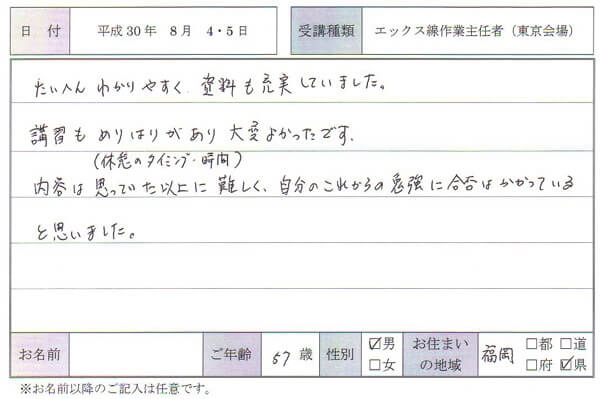 日 付 平成30年 8月 4・5日 受講種類 エックス線作業主任者（東京会場）
たいへん わかりやすく、資料も充実していました。
講習も めりはりがあり 大変よかったです。
（休憩のタイミング・時間）
内容は 思っていた以上に 難しく、自分のこれからの勉強に合否はかかっている
と思いました。
お名前 ご年齢 57歳 性別 ☑男 □女 お住まいの地域 福岡 □都 □道 □府 ☑県
※お名前以降のご記入は任意です。